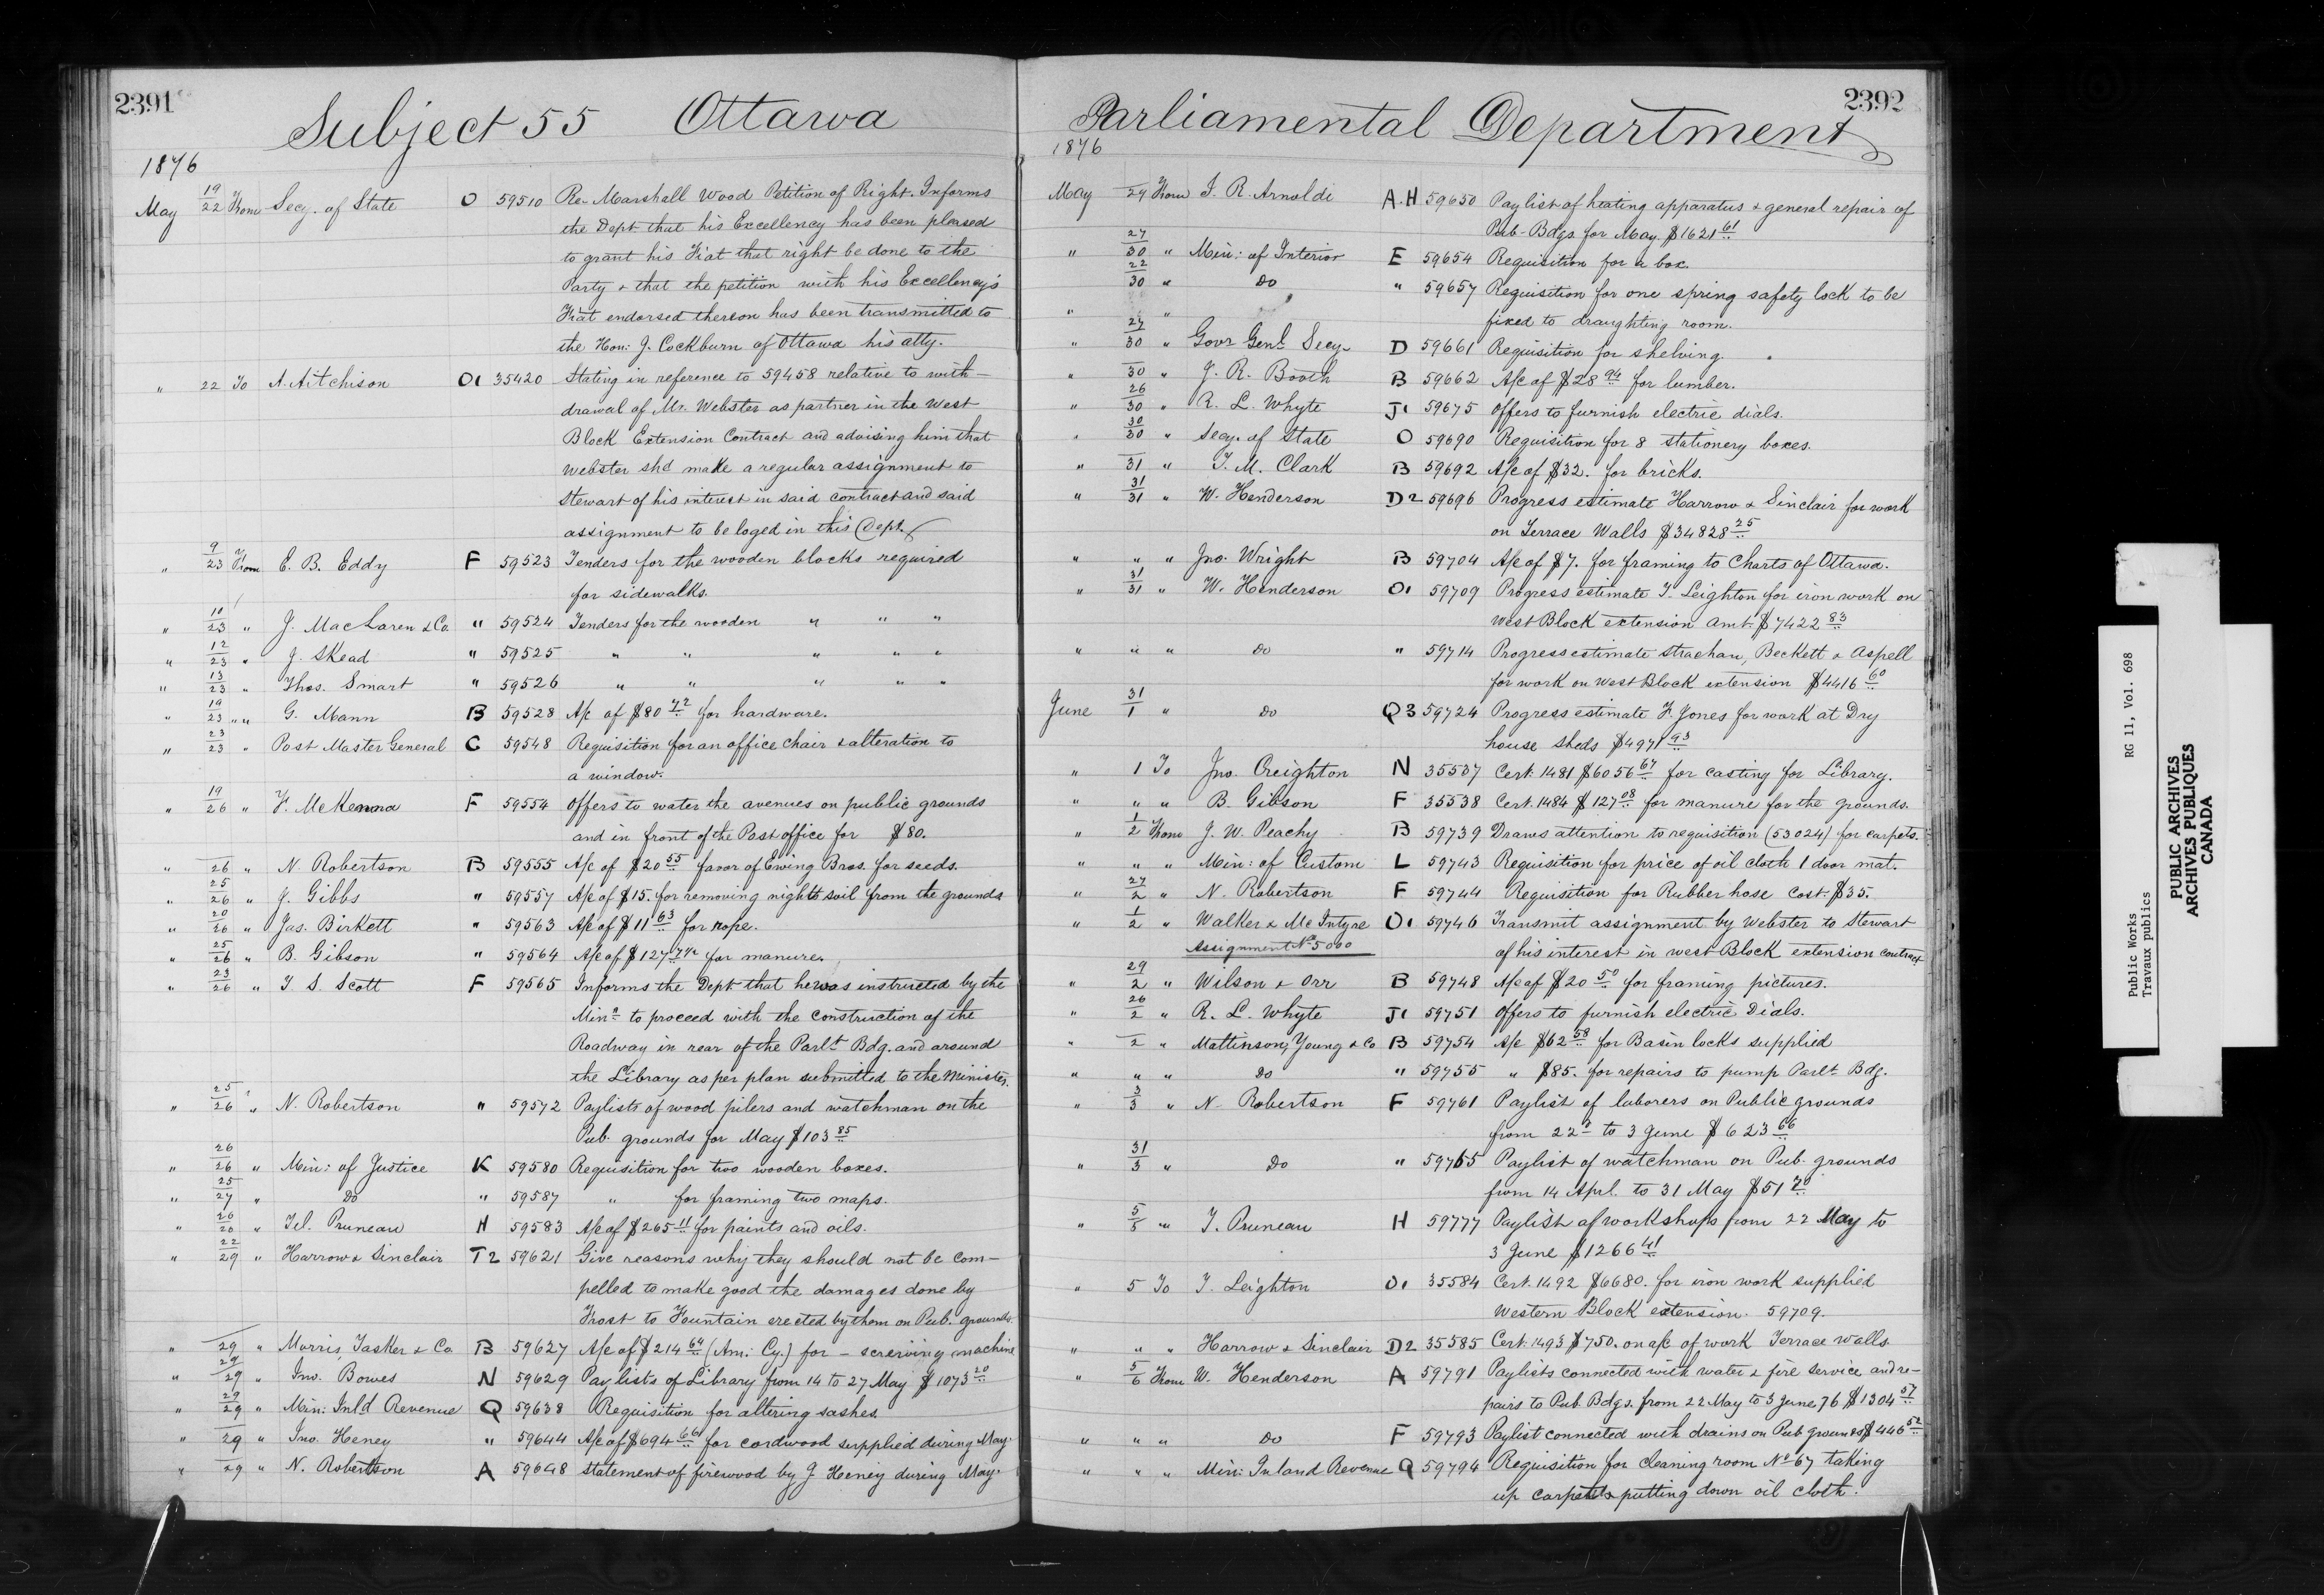 2391
Subject 55 Ottawa
1876
May 19/22 From Secy. of State O 59510 Re- Marshall Wood Petition of Right. Informs
the Dept that his Excellency has been pleased
to grant his Fiat that right be done to the
Party & that the petition with his Excellency's
Fiat endorsed thereon has been transmitted to
the Hon: J. Cockburn of Ottawa his atty.
" 22 To A. Aitchison O1 35420 Stating in reference to 59458 relative to with-
drawal of Mr. Webster as partner in the West
Block Extension Contract and advising him that
Webster shd make a regular assignment to
Stewart of his interest in said contract and said
assignment to be loged in this Dept.
" 9/23 From E. B. Eddy F 59523 Tenders for the wooden blocks required
for sidewalks.
" 10/23 " J. MacLaren & Co. " 59524 Tenders for the wooden " " "
" 12/23 " J. Skead " 59525 " " " " "
" 13/23 " Thos. Smart " 59526 " " " " "
" 19/23 " " G. Mann B 59528 A/c of $80 72 for hardware.
" 23/23 " Post Master General C 59548 Requisition for an office chair & alteration to
a window.
" 19/26 " F. McKenna F 59554 Offers to water the avenues on public grounds
and in front of the Post office for $80.
" 26 " N. Robertson B 59555 A/c of $20 55 favor of Ewing Bros. for seeds.
" 25/26 " J. Gibbs " 59557 A/c of $15. for removing night soil from the grounds
" 20/26 " Jas. Birkett " 59563 A/c of $11 63 for rope.
" 25/26 " B. Gibson " 59564 A/c of $127 for manure.
" 23/26 " T. S. Scott F 59565 Informs the Dept that he was instructed by the
Minr to proceed with the construction of the
Roadway in rear of the Parlt Bdg. and around
the Library as per plan submitted to the Minister.
" 25/26 " N. Robertson " 59572 Paylists of wood pilers and watchman on the
Pub. grounds for May $103 85
" 26/26 " Min: of Justice K 59580 Requisition for two wooden boxes.
" 25/27 " Do " 59587 " for framing two maps.
" 26/26 " Tel. Pruneau H 59583 A/c of $265 11 for paints and oils.
" 22/29 " Harrow & Sinclair T2 59621 Give reasons why they should not be com-
pelled to make good the damages done by
Frost to Fountain erected by them on Pub. grounds.
" 29 " Morris, Tasker & Co. B 59627 A/c of $214 64 (Am: Cy.) for - screwing machine
" 29/29 " Jno. Bowes N 59629 Paylists of Library from 14 to 27 May $1073 20
" 29/29 " Min: Inld Revenue Q 59638 Requisition for altering sashes.
" 29 " Jno. Heney " 59644 A/c of $694 66 for cordwood supplied during May.
" 29 " N. Robertson A 59648 Statement of firewood by J. Heney during May.
2392
Parliamental Department
1876
May 29 From J. R. Arnoldi A.H 59650 Paylist of heating apparatus & general repair of
Pub- Bdgs. for May. $1621 61
" 27/30 " Min: of Interior E 59654 Requisition for a box.
22/30 " Do " 59657 Requisition for one spring safety lock to be
" " fixed to draughting room.
" 27/30 " Govr Genl Secy. D 59661 Requisition for shelving.
" 30 " J. R. Booth B 59662 A/c of $28 94 for lumber.
" 26/30 " R. L. Whyte J1 59675 Offers to furnish electric dials.
" 30/30 " Secy. of State O 59690 Requisition for 8 stationery boxes.
" 31 " T. M. Clark B 59692 A/c of $32. for bricks.
" 31/31 " W. Henderson D2 59696 Progress estimate Harrow & Sinclair for work
on Terrace Walls $34828 25
" " " Jno. Wright B 59704 A/c of $7. for framing to Charts of Ottawa.
" 31/31 " W. Henderson O1 59709 Progress estimate T. Leighton for iron work on
West Block extension amt. $7422 83
" " " Do " 59714 Progress estimate Strachan, Beckett & Aspell
for work on West Block extension $4416 60
June 31/1 " Do Q3 59724 Progress estimate F. Jones for work at Dry
house sheds $4971 93
" 1 To Jno. Creighton N 35537 Cert. 1481 $6056 67 for casting for Library.
" " " B. Gibson F 35538 Cert. 1484 $127 08 for manure for the grounds.
" 1/2 From J. W. Peachy B 59739 Draws attention to requisition (53024) for carpets.
" " " Min: of Custom L 59743 Requisition for price of oil cloth 1 door mat.
" 27/2 " N. Robertson F 59744 Requisition for Rubber hose cost. $35.
" 1/2 " Walker & McIntyre O1 59746 Transmit assignment by Webster to Stewart
Assignment No 5000 of his interest in West Block extension contract
" 29/2 " Wilson & Orr B 59748 A/c of $20 50 for framing pictures.
" 26/2 " R. L. Whyte J1 59751 Offers to furnish electric Dials.
" 2 " Mattinson, Young & Co B 59754 A/c $62 58 for Basin locks supplied
" " " Do " 59755 " $85. for repairs to pump Parlt Bdg.
" 3/3 " N. Robertson F 59761 Paylist of laborers on Public grounds
from 22d to 3 June $623 66
" 31/3 " Do " 59765 Paylist of watchman on Pub. grounds
from 14 Apl. to 31 May $51 70
" 5/5 " T. Pruneau H 59777 Paylist of workshops from 22 May to
3 June $1266 41
" 5 To T. Leighton O1 35584 Cert. 1492 $6680. for iron work supplied
Western Block extension. 59709.
" " " Harrow & Sinclair D2 35585 Cert. 1493 $750. on a/c of work Terrace walls.
" 5/6 From W. Henderson A 59791 Paylists connected with water & fire service and re-
pairs to Pub. Bdgs. from 22 May to 3 June 76 $1304 57
" " " Do F 59793 Paylist connected with drains on Pub grounds $446 52
" " " Min: Inland Revenue Q 59794 Requisition for cleaning room No 67 taking
up carpets & putting down oil cloth.
Public Works RG 11, Vol. 698
Travaux publics
PUBLIC ARCHIVES
ARCHIVES PUBLIQUES
CANADA